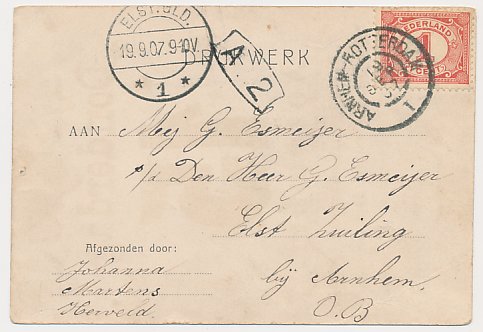 ELST.GLD.
19.9.07.9-10V
* 1 *
A 2
DRUKWERK
NEDERLAND
1
CENT
ARNHEM-ROTTERDAM
I
AAN Mej G. Esmeijer
p/a Den Heer G. Esmeijer
Elst
bij Arnhem.
O.B
Afgezonden door:
Johanna
Martens